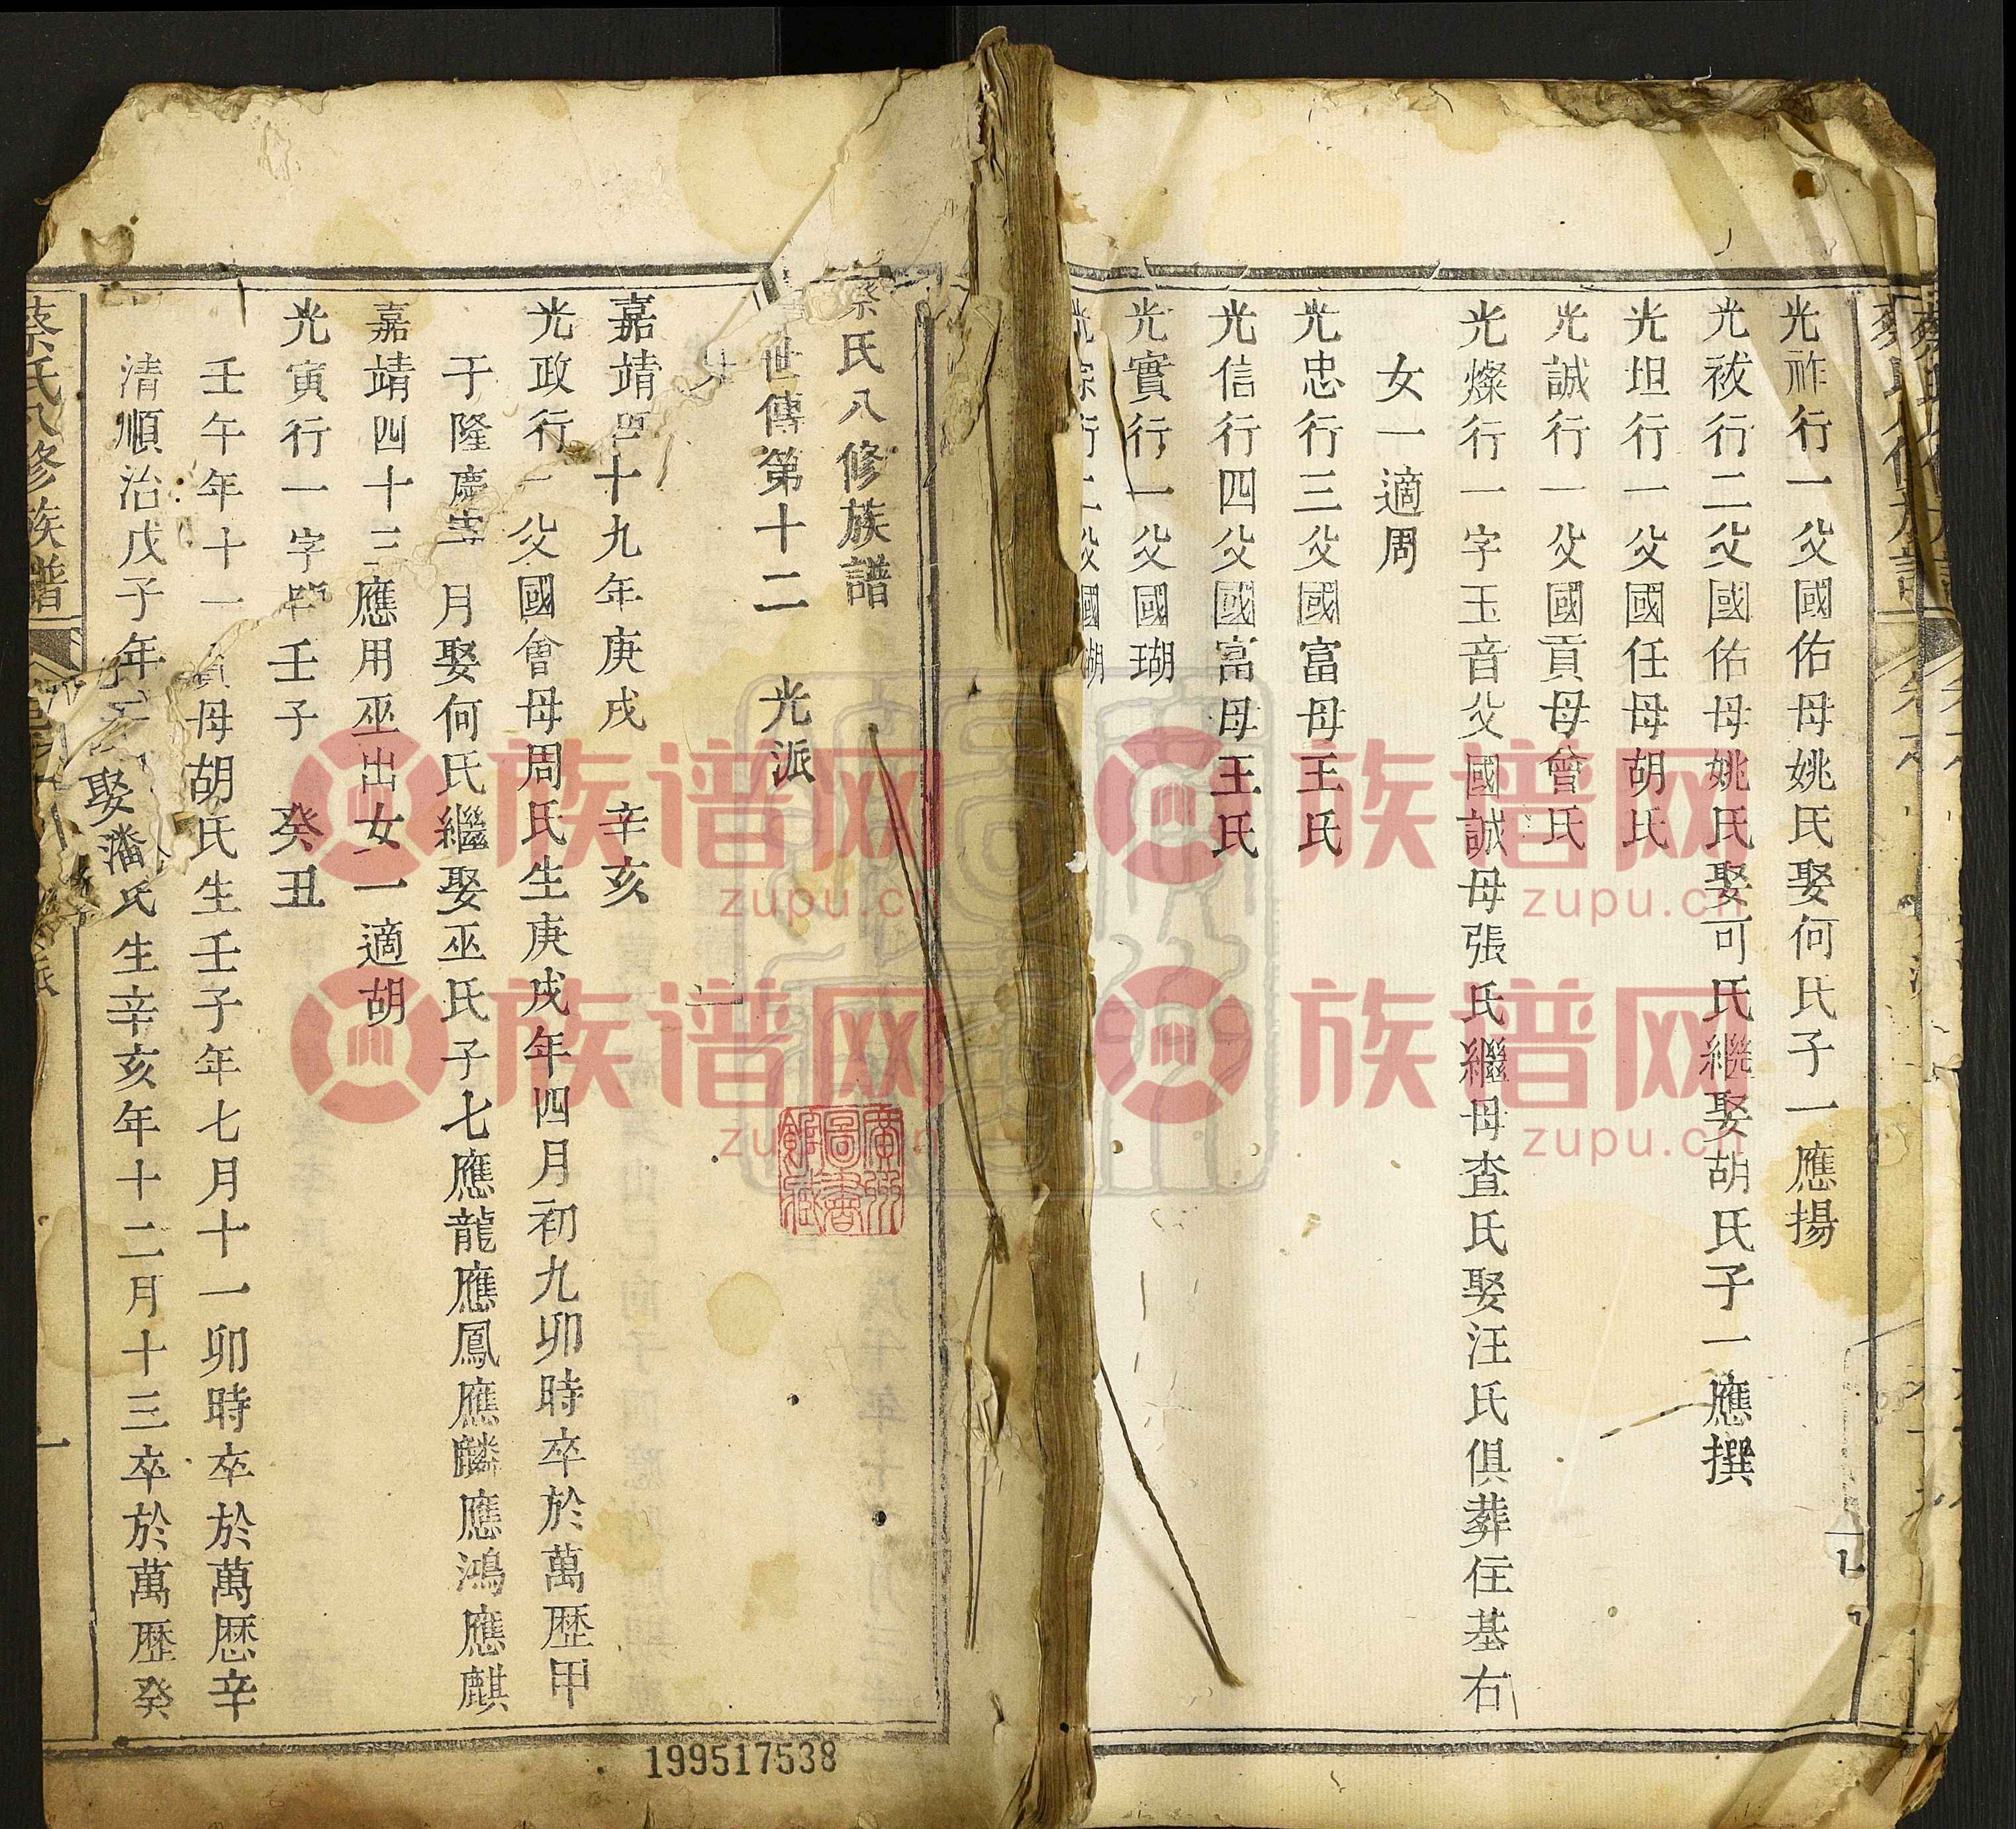 光祚行一父國佑母姚氏娶何氏子一應揚
光袚行二父國佑母姚氏娶可氏繼娶胡氏子一應撰
光坦行一父國任母胡氏
光誠行一父國貢母會氏
光燦行一字玉音父國誠母張氏繼母查氏娶汪氏俱葬住基右
女一適周
光忠行三父國富母王氏
光信行四父國富母王氏
光實行一父國瑚
行二父國瑚
蔡氏八修族譜
世傳第十二 光派
嘉靖四十九年庚戌 辛亥
光政行一父國會母周氏生庚戌年四月初九卯時卒於萬歷甲
于隆慶 月娶何氏繼娶巫氏子七應龍應鳳應麟應鴻應麒
嘉靖四十三應用巫出女一適胡
光寅行一字 壬子 癸丑
壬午年十一 母胡氏生壬子年七月十一卯時卒於萬歷辛
清順治戊子年 娶潘氏生辛亥年十二月十三卒於萬歷癸
蔡氏八修族譜
廣州圖書館藏
199517538
族谱网
zupu.cn
族谱网
zupu.cn
族谱网
zupu.cn
族谱网
zupu.cn